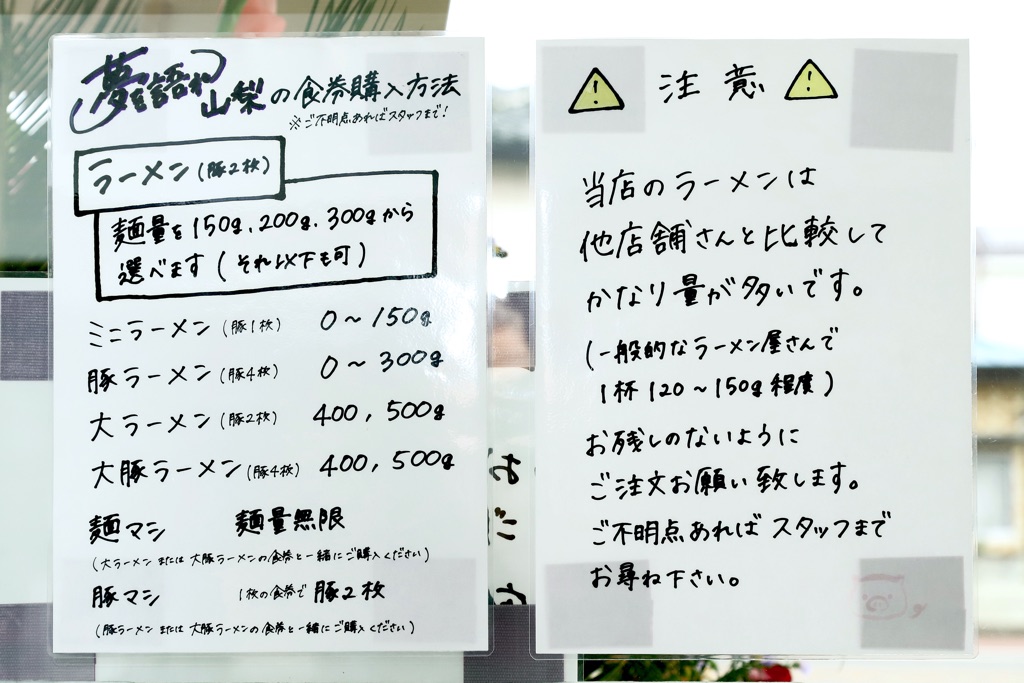 夢を語れ山梨の食券購入方法
※ご不明点あればスタッフまで!
ラーメン(豚2枚)
麺量を150g、200g、300gから
選べます(それ以下も可)
ミニラーメン(豚1枚) 0～150g
豚ラーメン(豚4枚) 0～300g
大ラーメン(豚2枚) 400,500g
大豚ラーメン(豚4枚) 400,500g
麺マシ 麺量無限
(大ラーメンまたは大豚ラーメンの食券と一緒にご購入ください)
豚マシ 1枚の食券で豚2枚
(豚ラーメンまたは大豚ラーメンの食券と一緒にご購入ください)
注意
当店のラーメンは
他店舗さんと比較して
かなり量が多いです。
(一般的なラーメン屋さんで
1杯120～150g程度)
お残しのないように
ご注文お願い致します。
ご不明点あればスタッフまで
お尋ね下さい。